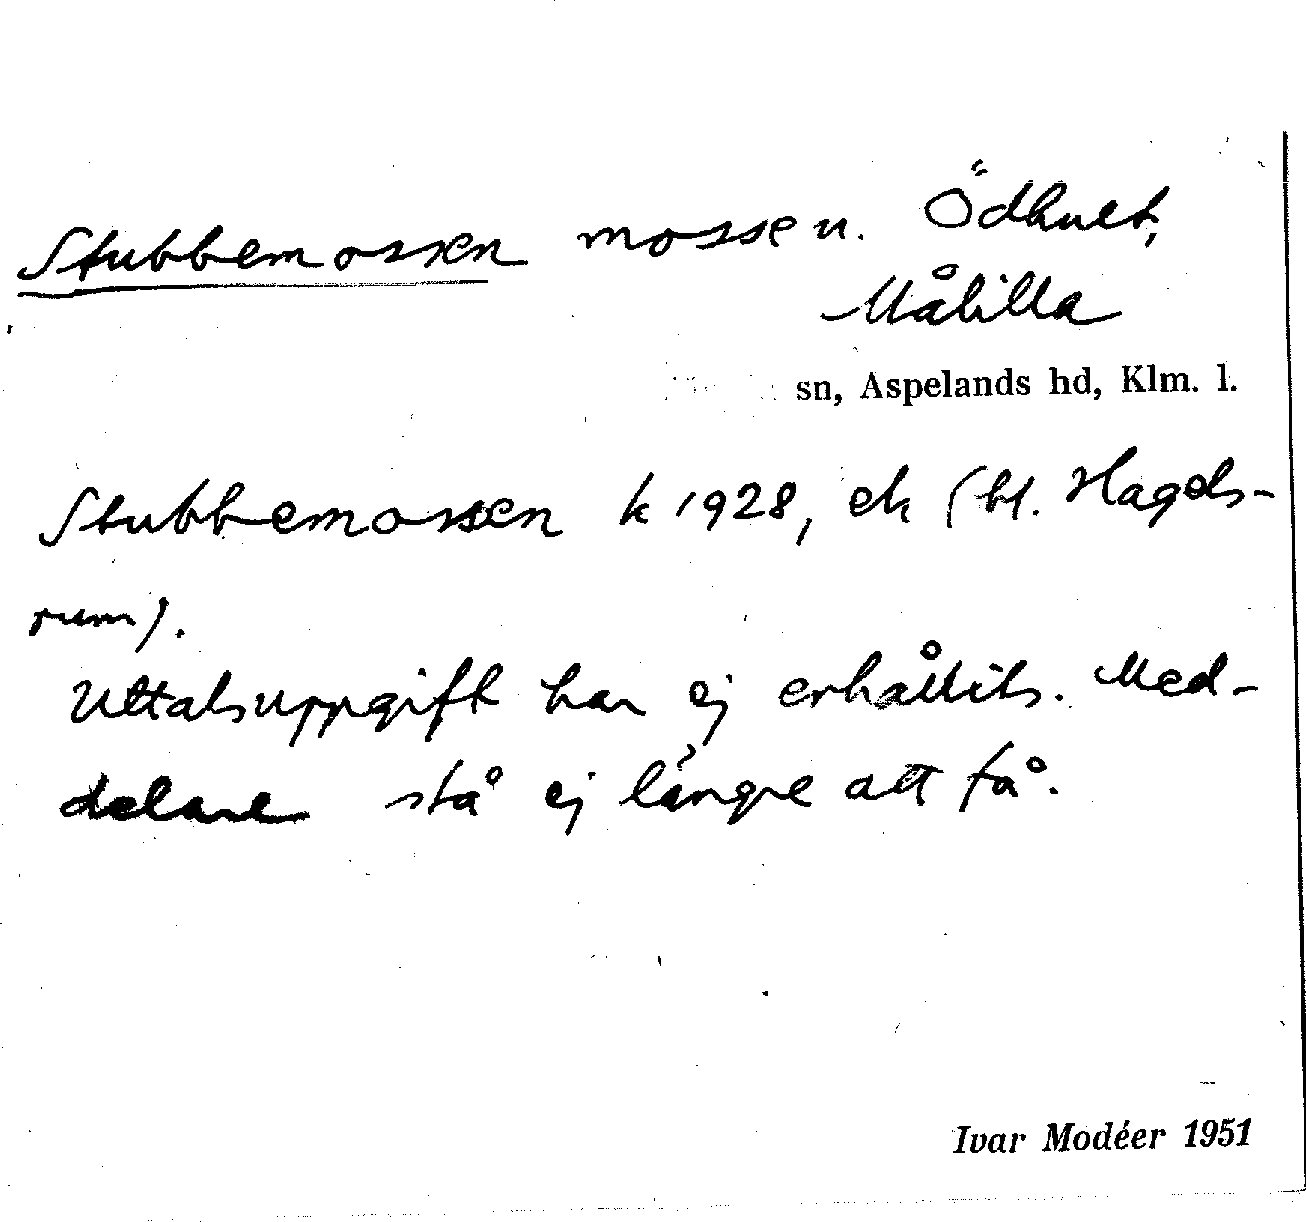 Stubbemossen mosse u. Ödhult,
Målilla
sn, Aspelands hd, Klm. l.
Stubbemossen k 1928, ek (bl. Hagels-
rum).
Uttalsuppgift har ej erhållits. Med-
delare stå ej längre att få.
Ivar Modéer 1951